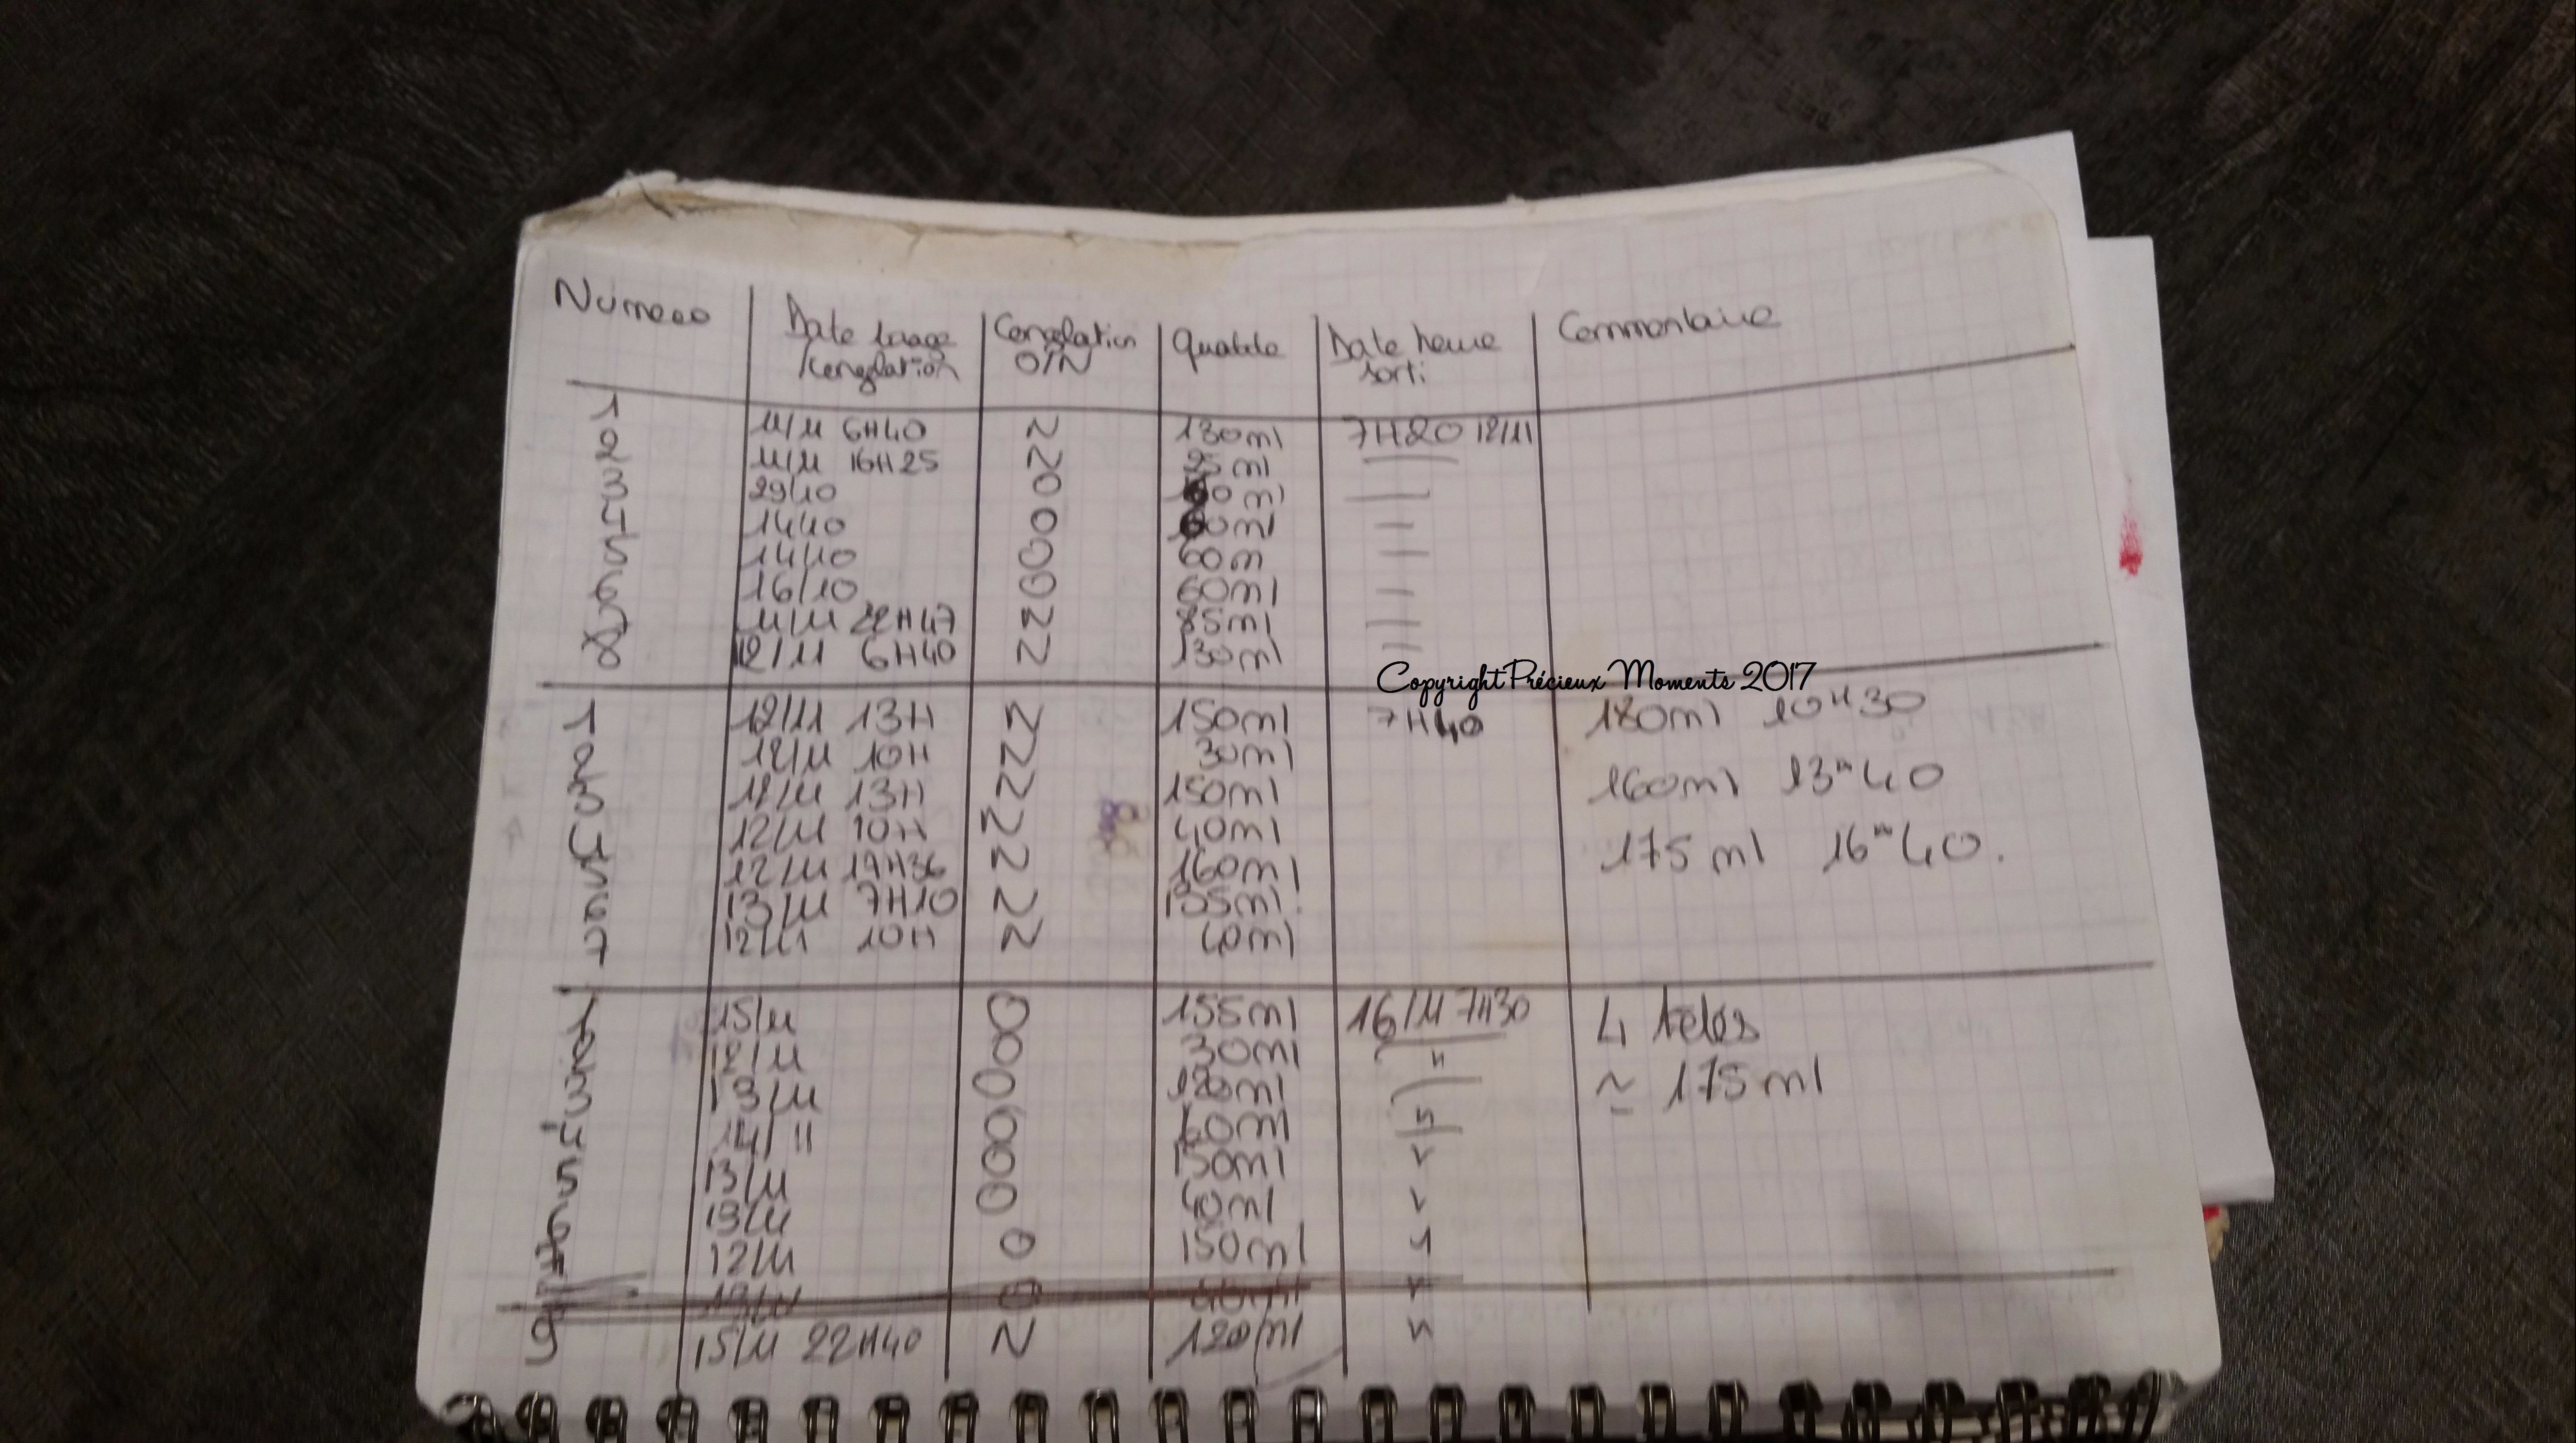 Numero Date tirage Congelation Quantite Date heure Commentaire
/congelation O/N sorti
1 11/11 6H40 N 130ml 7H20 12/11
2 11/11 16H25 N 25ml
3 29/10 O
4 14/10 O
5 14/10 O 60m
6 16/10 O 60ml
7 11/11 22H47 N 85ml
8 12/11 6H40 N 130ml
Copyright Précieux Moments 2017
1 12/11 13H N 150ml 7H40 180ml 10H30
2 12/11 10H N 30ml
3 12/11 13H N 150ml 160ml 13H40
4 12/11 10H N 40ml
5 12/11 17H36 N 160ml 175ml 16H40.
6 13/11 7H10 N 135ml
7 12/11 10H N 40ml
1 15/11 O 155ml 16/11 7H30 4 tetés
2 12/11 O 30ml "
3 13/11 O 120ml ≃ 175ml
4 14/11 O 60ml "
5 13/11 O 150ml "
6 13/11 O 40ml "
7 12/11 O 150ml "
13/11 O 40ml "
9 15/11 22H40 N 120ml "